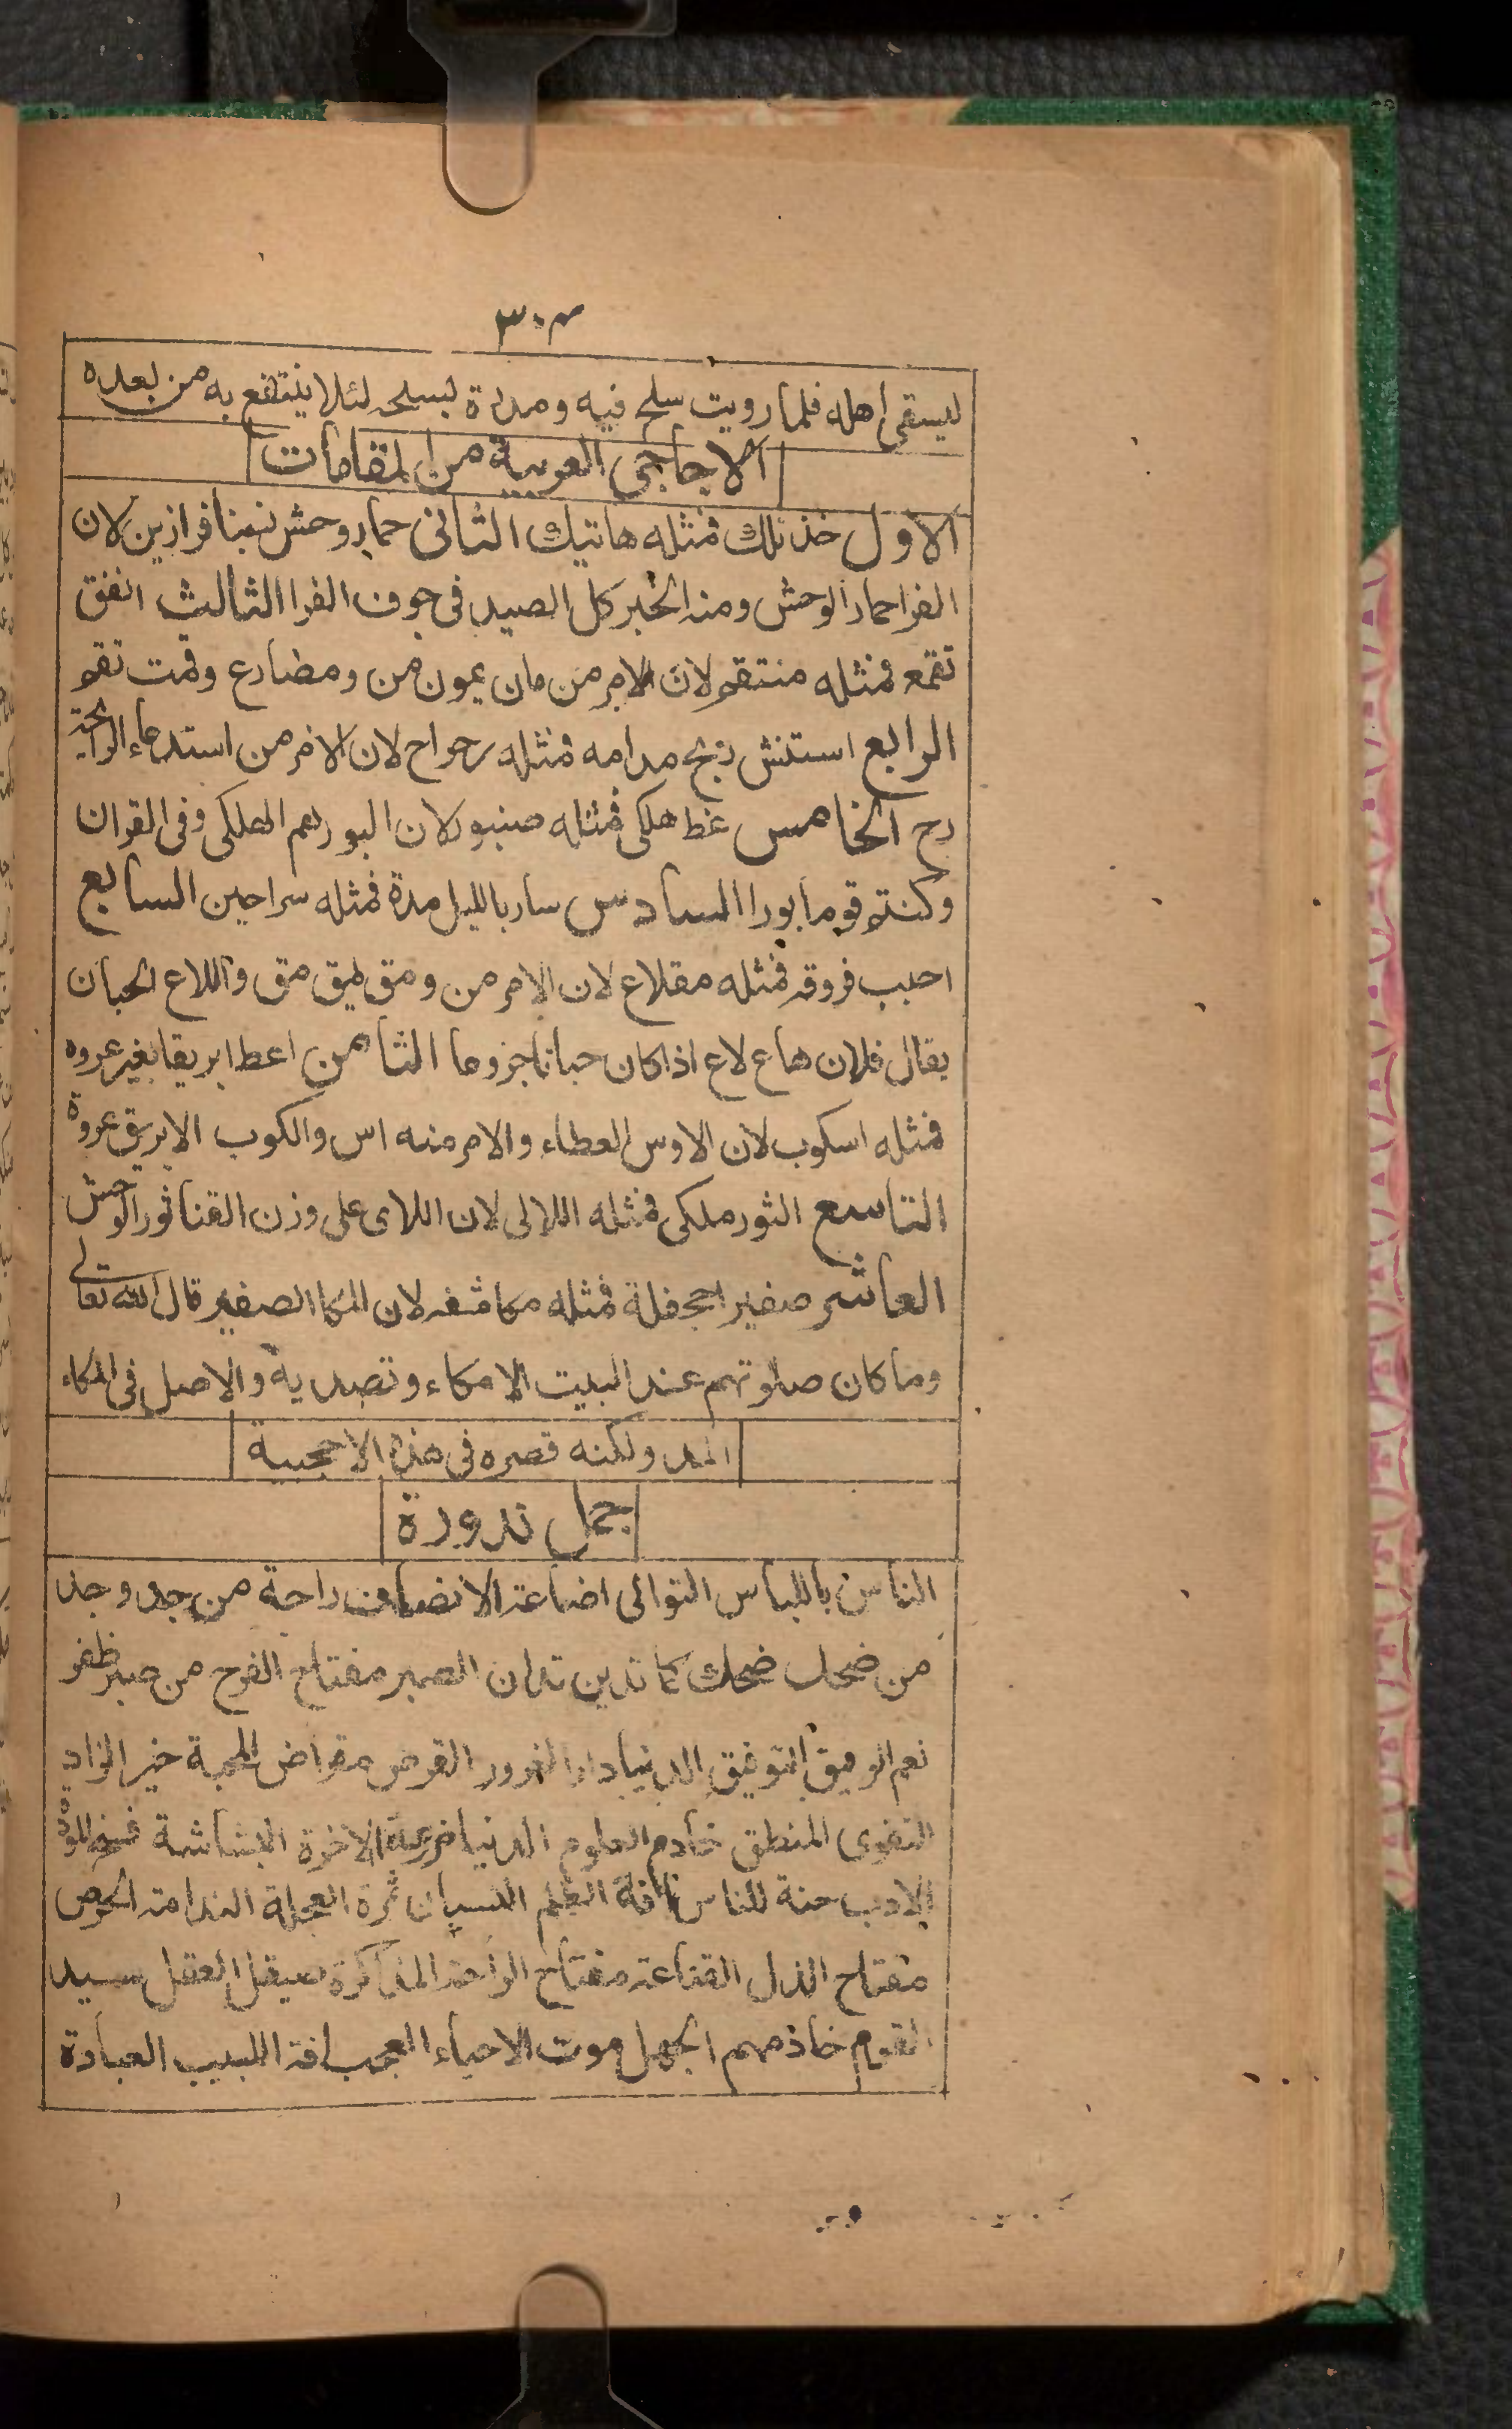 ٣٠٣
ليسقى اهله فلما رويت سلح فيه ومدرة لبسلحه لئلا ينتفع به من بعده
الاحاجى العربية من المقامات
الاول خذ تلك فمثله هاتيك الثانى حمار وحش نمينا فرازين لان
الفرا حمار الوحش ومنه الخبر كل الصيد فى جوف الفرا الثالث انفق
تقمع فمثله منتقم لان الامر من مان يمون من ومضارع وقمت تقم
الرابع استنش ريح مدامه فمثله رحراح لان الامر من استدعاء الرائحة
رح الخامس غط هلكى فمثله صنبور لان البور هم الهلكى وفى القران
وكنتم قوما بورا السادس سار بالليل مدة فمثله سراحين السابع
احبب فروقه فمثله مقلاع لان الامر من ومق يمق مق واللاع الجبان
يقال فلان هاع لاع اذا كان جبانا جزوعا الثامن اعط ابريقا بغير عروه
فمثله اسكوب لان الاوس العطاء والامر منه اس والكوب الابريق عروة
التاسع الثور ملكى فمثله اللالى لان اللاى على وزن القنا ثور الوحش
العاشر صفير جحفلة فمثله مكاشفه لان المكا الصفير قال الله تعالى
وما كان صلوتهم عند البيت الا مكاء وتصدية والاصل فى المكاء
المد ولكنه قصره فى هذه الاحجية
جمل ندورة
الناس باللباس التوالى اضاعة الانصاف راحة من جد وجد
من ضحك ضحك كما تدين تدان الصبر مفتاح الفرح من صبر ظفر
نعم الرفيق التوفيق الدنيا دار الغرور القرض مقراض المحبة خير الزاد
التقوى المنطق خادم العلوم الدنيا مزرعة الاخرة البشاشة فخ المودة
الادب جنة للناس افة العلم النسيان ثمرة العجلة الندامة الحرص
مفتاح الذل القناعة مفتاح الراحة المذاكرة صيقل العقل سيد
القوم خادمهم الجهل موت الاحياء العجب افة اللبيب العبادة